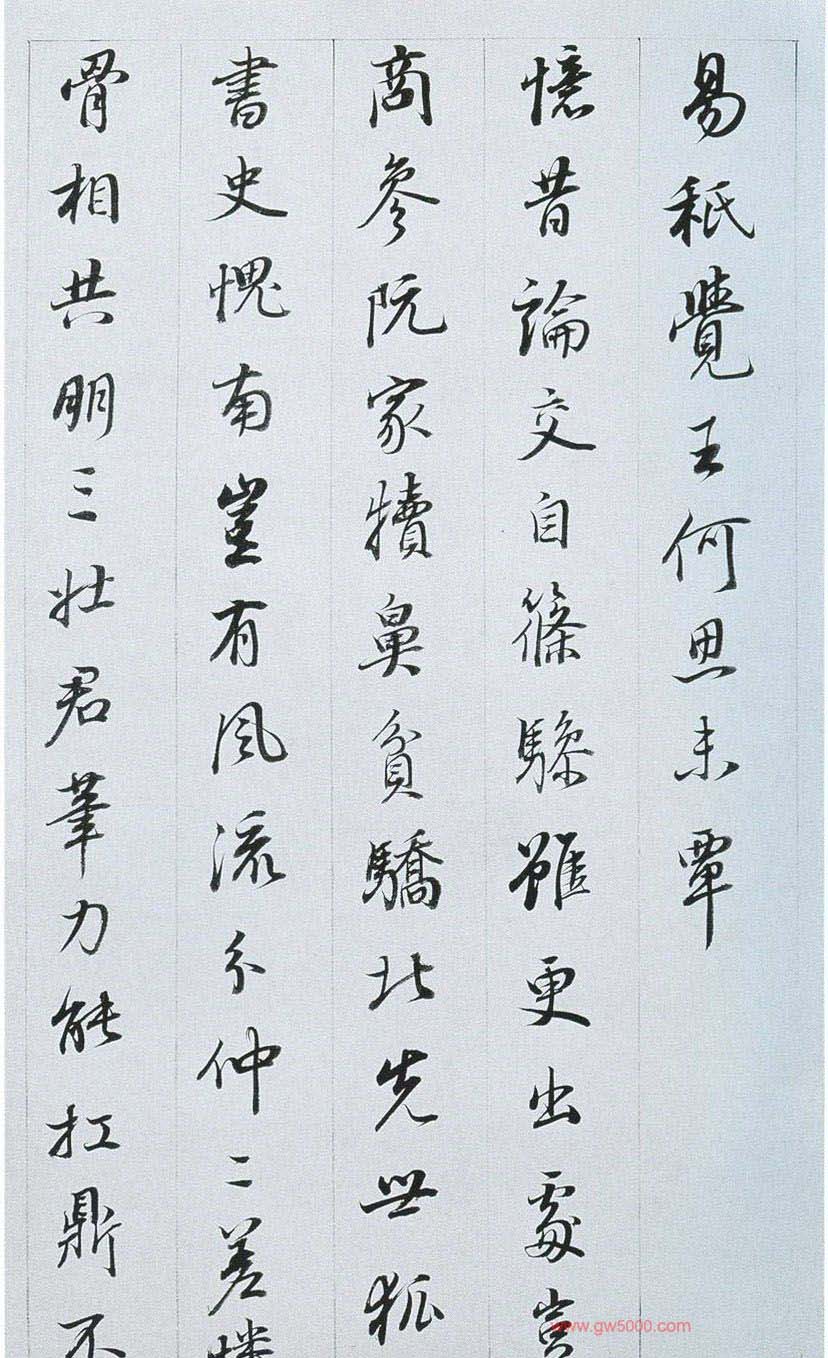 易秖覺王何思未覃
憶昔論交自篠驂雖更出處豈
商參阮家犢鼻貧驕北先世狐
書史愧南豈有風流分仲二差
骨相共明三壯君筆力能扛鼎不
www.gw5000.com